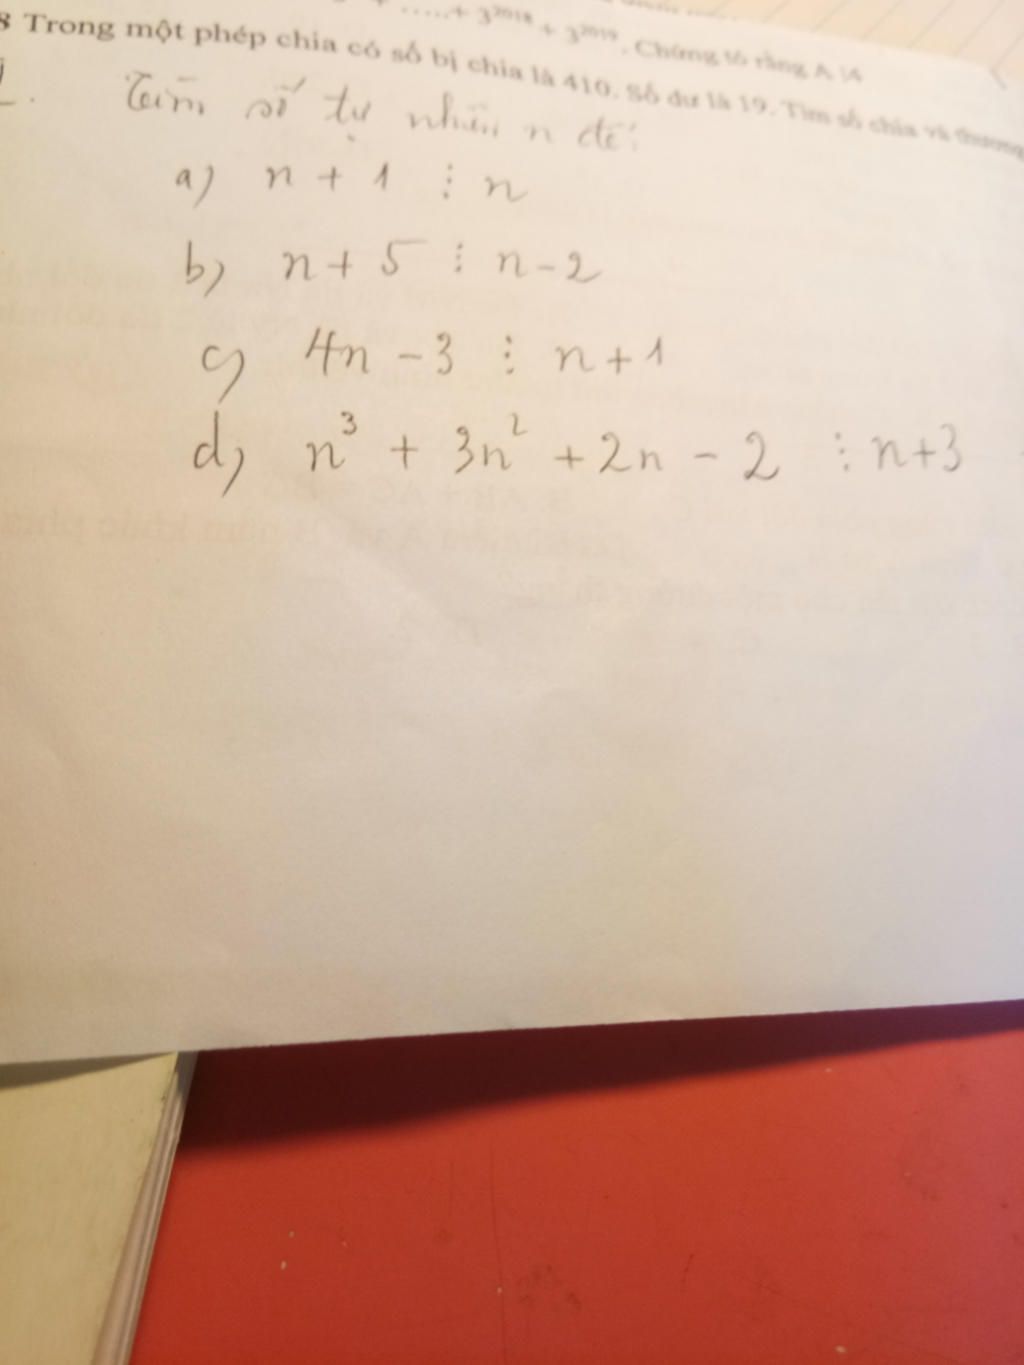 .....+ 3²⁰¹⁸ + 3²⁰¹⁹. Chứng tỏ rằng A ⋮4
8 Trong một phép chia có số bị chia là 410. Số dư là 19. Tìm số chia và thương
Tìm số tự nhiên n để:
a) n + 1 ⋮ n
b) n + 5 ⋮ n - 2
c) 4n - 3 ⋮ n + 1
d) n³ + 3n² + 2n - 2 ⋮ n+3